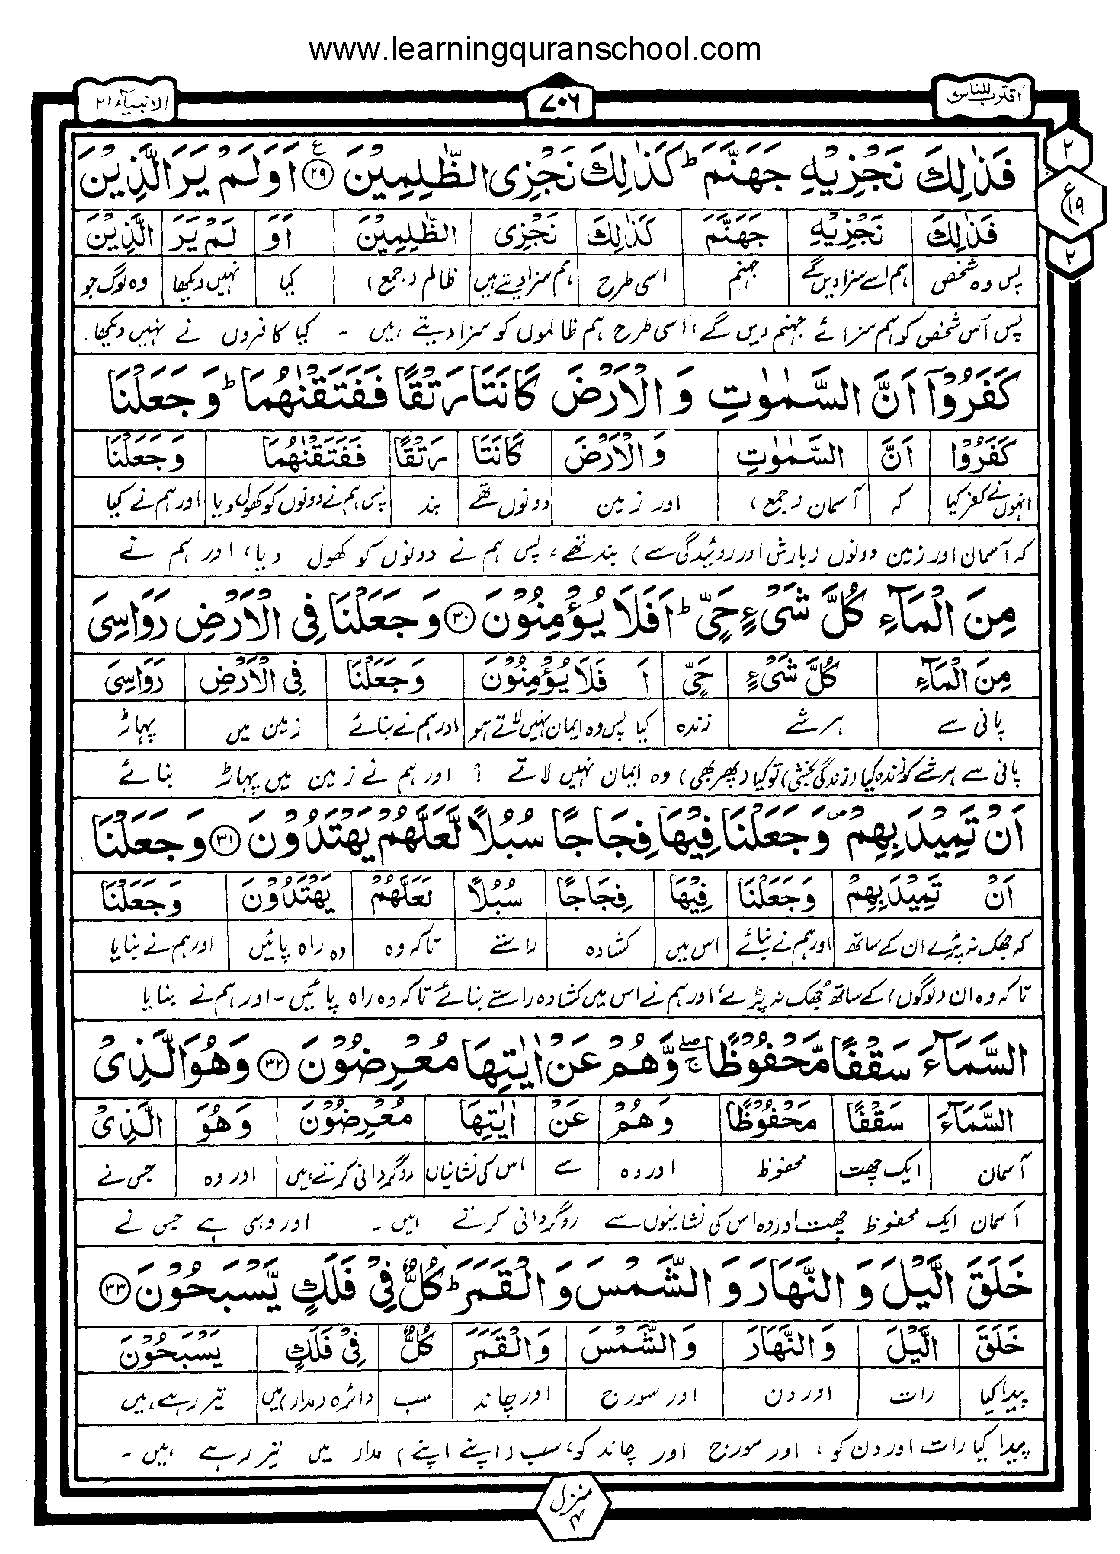 www.learningquranschool.com
اقترب للناس ۱۷
۷۰۶
الانبیآء ۲۱
فَذٰلِكَ نَجْزِیْهِ جَهَنَّمَ ؕ كَذٰلِكَ نَجْزِی الظّٰلِمِیْنَ ۲۹ اَوَلَمْ یَرَ الَّذِیْنَ
۲
ع ۱۹
۲
فَذٰلِكَ نَجْزِیْهِ جَهَنَّمَ كَذٰلِكَ نَجْزِی الظّٰلِمِیْنَ اَوَ لَمْ یَرَ الَّذِیْنَ
پس وہ شخص ہم اسے سزا دیں گے جہنم اسی طرح ہم سزا دیتے ہیں ظالم (جمع) کیا نہیں دیکھا وہ لوگ جو
پس اس شخص کو ہم سزائے جہنم دیں گے، اسی طرح ہم ظالموں کو سزا دیتے ہیں ۔ کیا کافروں نے نہیں دیکھا۔
كَفَرُوْۤا اَنَّ السَّمٰوٰتِ وَ الْاَرْضَ كَانَتَا رَتْقًا فَفَتَقْنٰهُمَا ؕ وَ جَعَلْنَا
كَفَرُوْا اَنَّ السَّمٰوٰتِ وَ الْاَرْضَ كَانَتَا رَتْقًا فَفَتَقْنٰهُمَا وَ جَعَلْنَا
انہوں نے کفر کیا کہ آسمان (جمع) اور زمین دونوں تھے بند پس ہم نے دونوں کو کھول دیا اور ہم نے کیا
کہ آسمان اور زمین دونوں (بارش اور روئیدگی سے) بند تھے، پس ہم نے دونوں کو کھول دیا، اور ہم نے
مِنَ الْمَآءِ كُلَّ شَیْءٍ حَیٍّ ؕ اَفَلَا یُؤْمِنُوْنَ ۳۰ وَ جَعَلْنَا فِی الْاَرْضِ رَوَاسِیَ
مِنَ الْمَآءِ كُلَّ شَیْءٍ حَیٍّ اَ فَلَا یُؤْمِنُوْنَ وَ جَعَلْنَا فِی الْاَرْضِ رَوَاسِیَ
پانی سے ہر شے زندہ کیا پس وہ ایمان نہیں لاتے ہو اور ہم نے بنائے زمین میں پہاڑ
پانی سے ہر شے کو زندہ کیا (زندگی بخشی) تو کیا (پھر بھی) وہ ایمان نہیں لاتے ؟ اور ہم نے زمین میں پہاڑ بنائے
اَنْ تَمِیْدَ بِهِمْ ۪ وَ جَعَلْنَا فِیْهَا فِجَاجًا سُبُلًا لَّعَلَّهُمْ یَهْتَدُوْنَ ۳۱ وَ جَعَلْنَا
اَنْ تَمِیْدَ بِهِمْ وَ جَعَلْنَا فِیْهَا فِجَاجًا سُبُلًا لَعَلَّهُمْ یَهْتَدُوْنَ وَ جَعَلْنَا
کہ جھک نہ پڑے ان کے ساتھ اور ہم نے بنائے اس میں کشادہ راستے تاکہ وہ وہ راہ پائیں اور ہم نے بنایا
تاکہ وہ ان (لوگوں) کے ساتھ جھک نہ پڑے، اور ہم نے اس میں کشادہ راستے بنائے تاکہ وہ راہ پائیں ۔ اور ہم نے بنایا
السَّمَآءَ سَقْفًا مَّحْفُوْظًا ۚۖ وَّ هُمْ عَنْ اٰیٰتِهَا مُعْرِضُوْنَ ۳۲ وَ هُوَ الَّذِیْ
السَّمَآءَ سَقْفًا مَحْفُوْظًا وَ هُمْ عَنْ اٰیٰتِهَا مُعْرِضُوْنَ وَ هُوَ الَّذِیْ
آسمان ایک چھت محفوظ اور وہ سے اس کی نشانیاں روگردانی کرتے ہیں اور وہ جس نے
آسمان ایک محفوظ چھت اور وہ اس کی نشانیوں سے روگردانی کرتے ہیں ۔ اور وہی ہے جس نے
خَلَقَ الَّیْلَ وَ النَّهَارَ وَ الشَّمْسَ وَ الْقَمَرَ ؕ كُلٌّ فِیْ فَلَكٍ یَّسْبَحُوْنَ ۳۳
خَلَقَ الَّیْلَ وَ النَّهَارَ وَ الشَّمْسَ وَ الْقَمَرَ كُلٌّ فِیْ فَلَكٍ یَسْبَحُوْنَ
پیدا کیا رات اور دن اور سورج اور چاند سب دائرہ (مدار) میں تیر رہے ہیں
پیدا کیا رات اور دن کو، اور سورج اور چاند کو، سب (اپنے اپنے) مدار میں تیر رہے ہیں ۔
منزل ۴